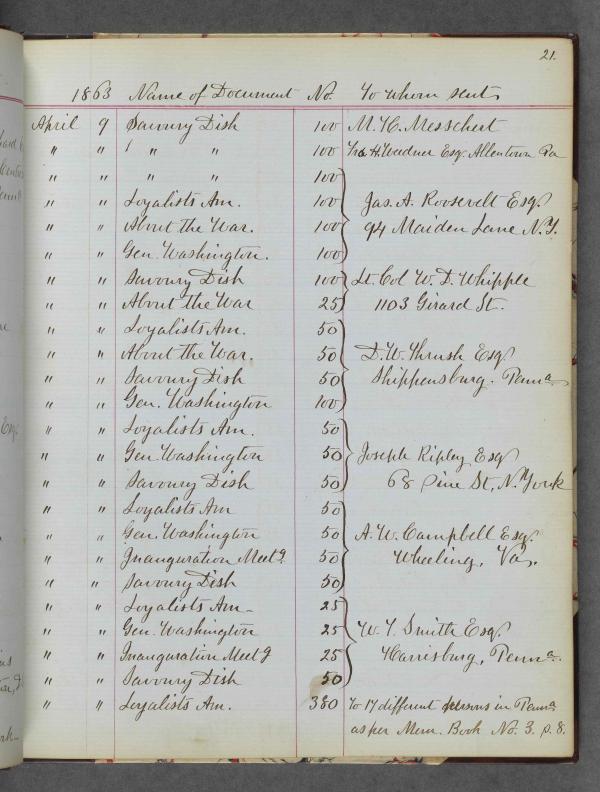 21.
1863 Name of Document No. To whom sent
April 9 Savoury Dish 100 M. H. Messchert
" " " " 100 H. Weidner Esq. Allentown Pa
" " " " 100
" " Loyalists Am. 100 Jas. A. Roosevelt Esq.
" " About the War. 100 94 Maiden Lane N.Y.
" " Gen. Washington. 100
" " Savoury Dish 100 Lt. Col W. D. Whipple
" " About the War 25 1103 Girard St.
" " Loyalists Am. 50
" " About the War. 50 D. W. Thrush Esq.
" " Savoury Dish 50 Shippensburg. Penna
" " Gen. Washington 100
" " Loyalists Am. 50
" " Gen. Washington 50 Joseph Ripley Esq
" " Savoury Dish 50 68 Pine St, N. York
" " Loyalists Am 50
" " Gen. Washington 50 A. W. Campbell Esq.
" " Inauguration Meetg. 50 Wheeling, Va.
" " Savoury Dish 50
" " Loyalists Am- 25
" " Gen. Washington 25 W. Y. Smith Esq
" " Inauguration Meetg 25 Harrisburg, Penna.
" " Savoury Dish 50
" " Loyalists Am. 380 To 17 different persons in Penna
as per Mem. Book No. 3. p. 8.